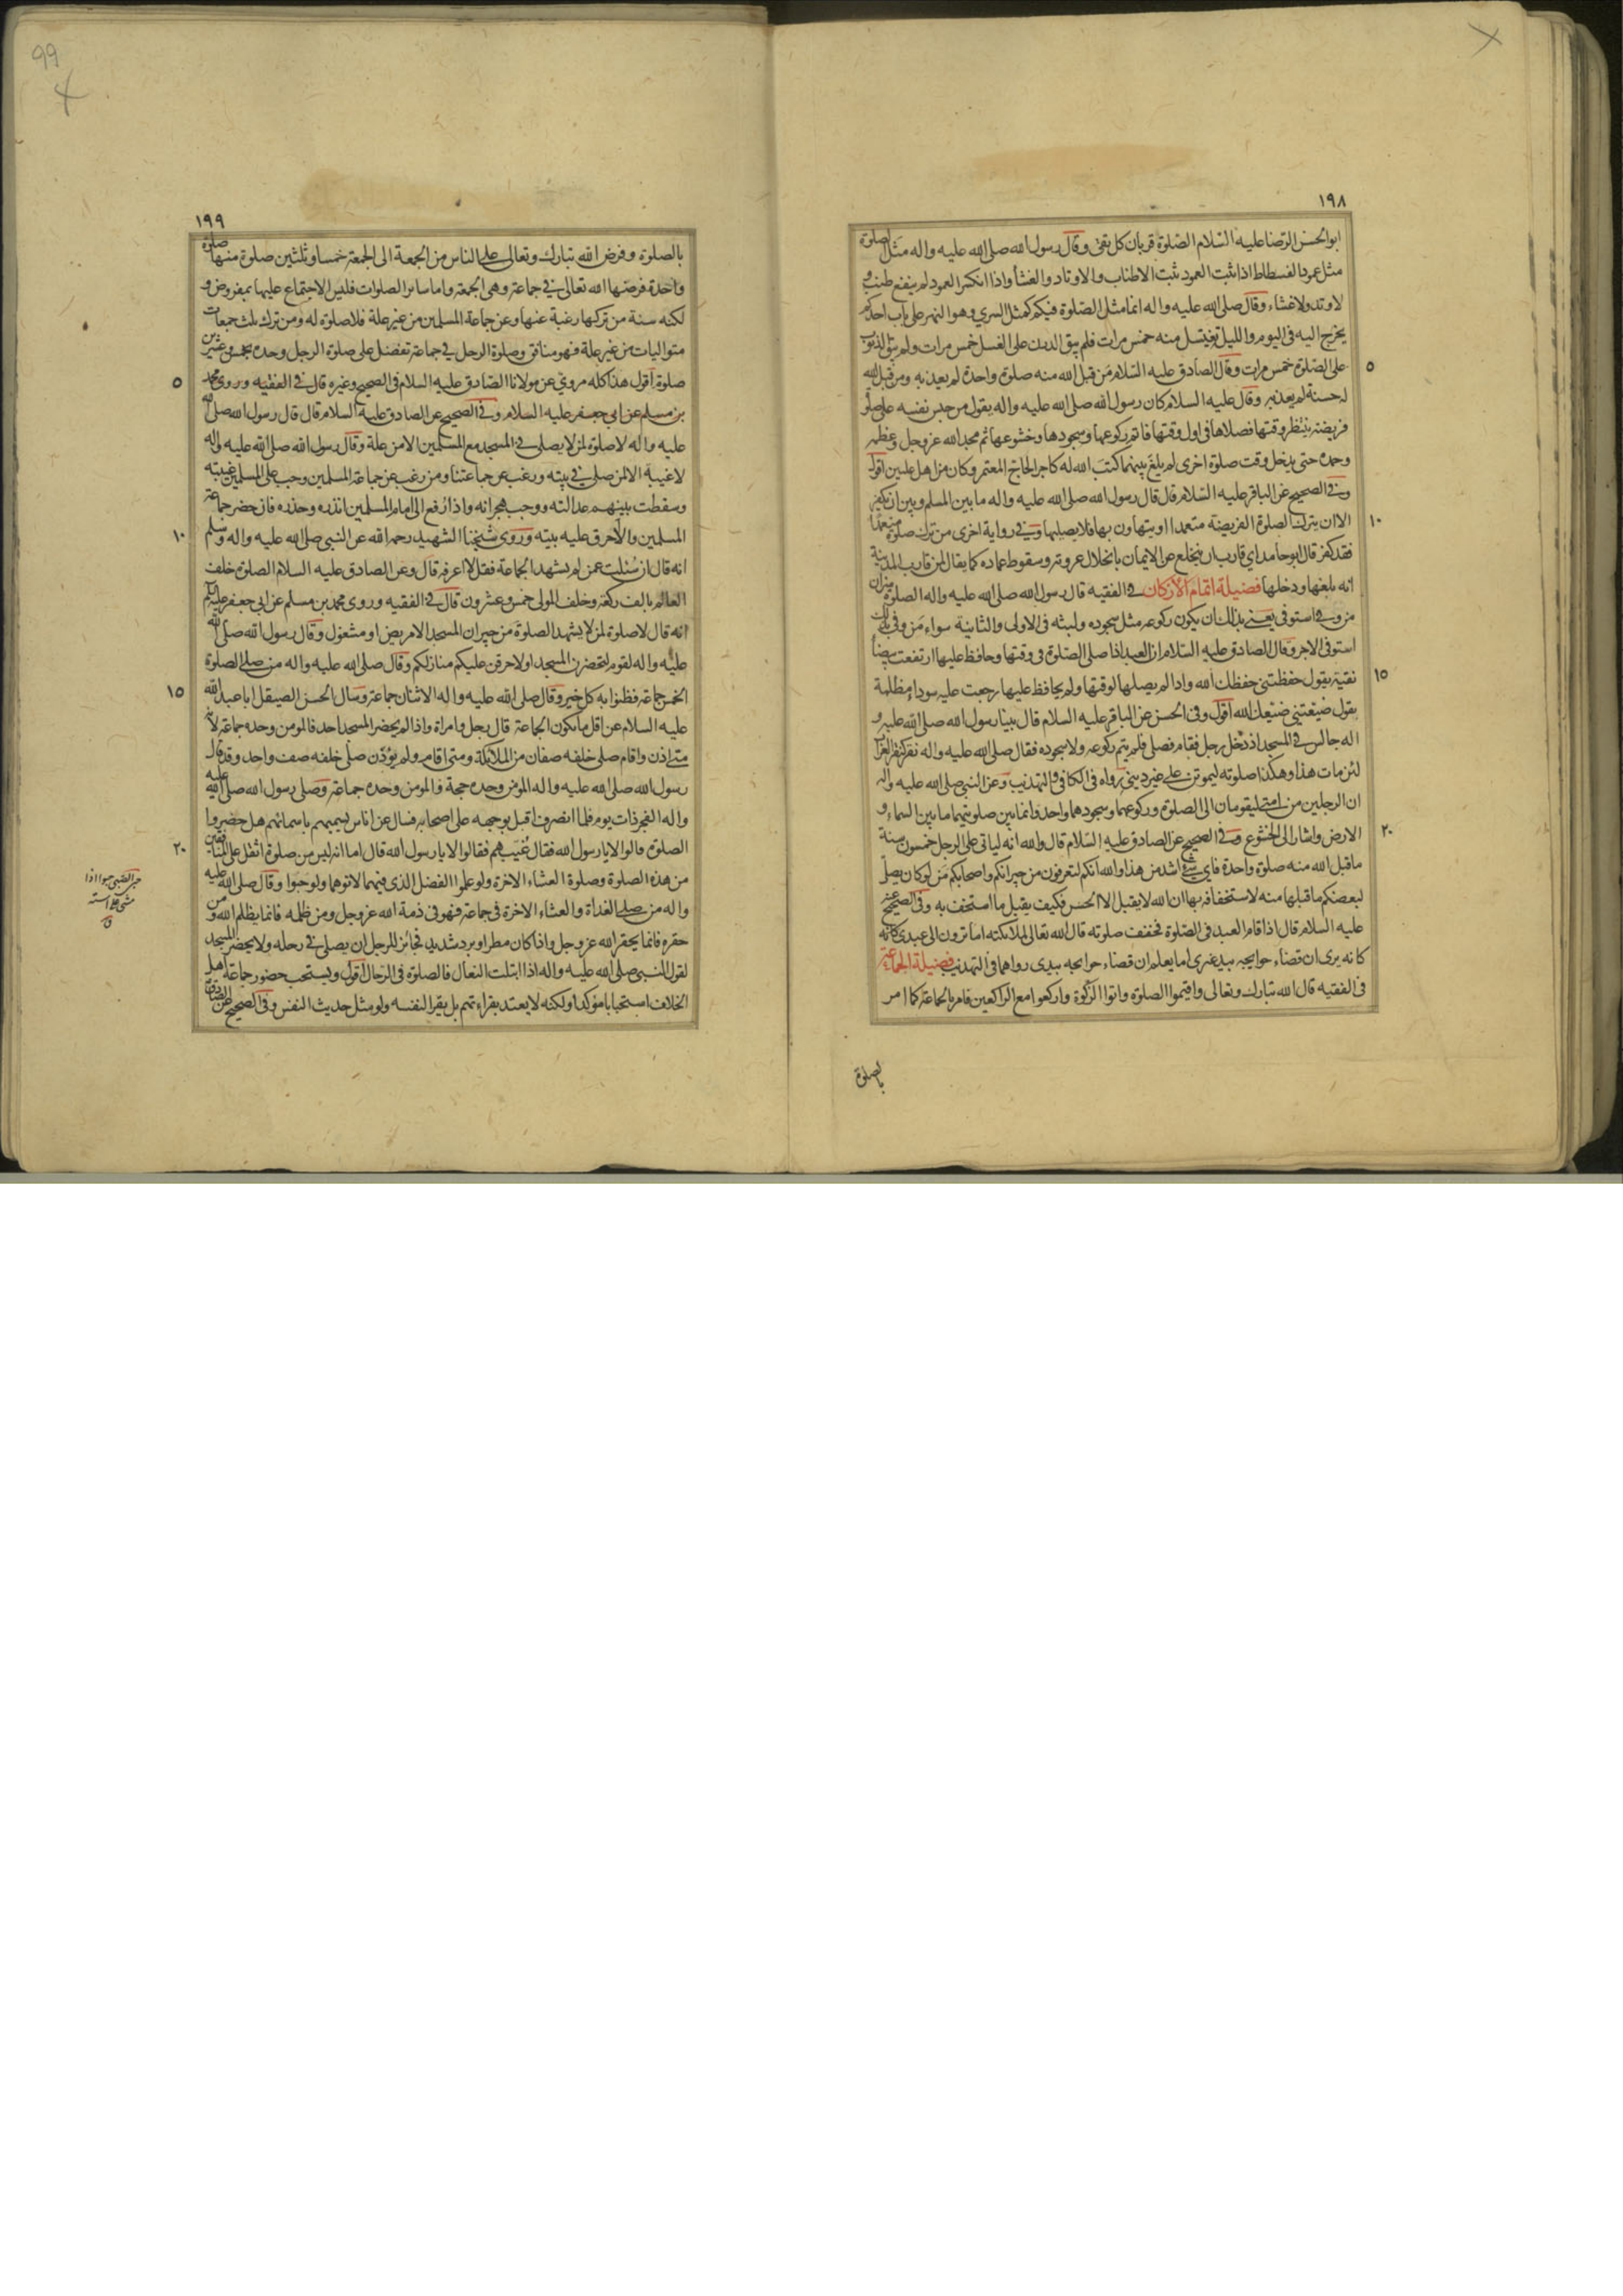 ١٩٨
ابوالحسن الرضا عليه السلام الصلوة قربان كل تقى وقال رسول الله صلى الله عليه واله مثل الصلوة
مثل عمود الفسطاط اذا ثبت العمود ثبت الاطناب والاوتاد والغشأ واذا انكسر العمود لم ينفع طنب و
لا وتد ولا غشاء وقال صلى الله عليه واله انما مثل الصلوة فيكم كمثل السري وهو النهر على باب احدكم
يخرج اليه فى اليوم والليل تغيتسل منه خمس مرات فلم يبق الدرن على الغسل خمس مرات ولم يبق الذنوب
على الصلوة خمس مرات وقال الصادق عليه السلام من قبل الله منه صلوة واحدة لم يعذبه ومن قبل الله
٥
له حسنة لم يعذبه وقال عليه السلام كان رسول الله صلى الله عليه واله يقول من حبس نفسه على صلوة
فريضة ينتظر وقتها فصلاها فى اول وقتها فاتم ركوعها وسجودها وخشوعها ثم مجد الله عز وجل وعظمه
وحمده حتى يدخل وقت صلوة اخرى لم يلغ بينهما كتب الله له كاجر الحاج المعتمر وكان من اهل عليين اقول
وفي الصحيح عن الباقر عليه السلام قال قال رسول الله صلى الله عليه واله ما بين المسلم وبين ان يكفر
الا ان يترك الصلوة الفريضة متعمدا او يتهاون بها فلا يصليها وفي رواية اخرى من ترك صلوة متعمدا
١٠
فقد كفر قال ابوحامد اي قارب ان ينخلع عن الايمان بانحلال عروته وسقوط عماده كما يقال لمن قارب المدينة
انه بلغها ودخلها فضيلة اتمام الاركان في الفقيه قال رسول الله صلى الله عليه واله الصلوة ميزان
من وفى استوفى يعنى بذلك ان يكون ركوعه مثل سجوده ولبثه فى الاولى والثانية سواء من وفى بذلك
استوفى الاجر وقال الصادق عليه السلام ان العبد اذا صلى الصلوة فى وقتها وحافظ عليها ارتفعت بيضأ
نقية تقول حفظتنى حفظك الله واذا لم يصلها لوقتها ولم يحافظ عليها رجعت عليه سوداء مظلمة
١٥
تقول ضيعتني ضيعك الله اقول وفى الحسن عن الباقر عليه السلام قال بينا رسول الله صلى الله عليه و
اله جالس في المسجد اذ دخل رجل فقام فصلى فلم يتم ركوعه ولا سجوده فقال صلى الله عليه واله نقر كنقر الغراب
لئن مات هذا وهكذا صلوته ليموتن على غير دينى رواه فى الكافى والتهذيب وعن النبى صلى الله عليه واله
ان الرجلين من امتى ليقومان الى الصلوة وركوعهما وسجودهما واحد وانما بين صلوتيهما ما بين السماء و
الارض واشار الى الخشوع وفى الصحيح عن الصادق عليه السلام قال والله انه لياتى على الرجل خمسون سنة
٢٠
ما قبل الله منه صلوة واحدة فاى شئ اشد من هذا والله انكم لتعرفون من جيرانكم واصحابكم من لو كان يصلى
لبعضكم ما قبلها منه لاستخفافه بها ان الله لا يقبل الا الحسن فكيف يقبل ما استخف به وفى الصحيح عنه
عليه السلام قال اذا قام العبد فى الصلوة فخفف صلوته قال الله تعالى لملائكته اما ترون الى عبدى كانه
كانه يرى ان قضاء حوايجه بيد غيرى اما يعلم ان قضاء حوايجه بيدى رواهما فى التهذيب فضيلة الجماعة
فى الفقيه قال الله تبارك وتعالى واقيموا الصلوة واتوا الزكوة واركعوا مع الراكعين فامر بالجماعة كما امر
بالصلوة
99
١٩٩
بالصلوة وفرض الله تبارك وتعالى على الناس من الجمعة الى الجمعة خمسا وثلثين صلوة منها صلوة
واحدة فرضها الله تعالى في جماعة وهى الجمعة واما سائر الصلوات فليس الاجتماع عليها بمفروض و
لكنه سنة من تركها رغبة عنها وعن جماعة المسلمين من غير علة فلا صلوة له ومن ترك ثلث جمعات
متواليات من غير علة فهو منافق وصلوة الرجل في جماعة تفضل على صلوة الرجل وحده بخمس وعشرين
صلوة اقول هذا كله مروي عن مولانا الصادق عليه السلام فى الصحيح وغيره قال فى الفقيه وروى محمد
٥
بن مسلم عن ابي جعفر عليه السلام وفى الصحيح عن الصادق عليه السلام قال قال رسول الله صلى الله
عليه واله لا صلوة لمن لا يصلى في المسجد مع المسلمين الا من علة وقال رسول الله صلى الله عليه واله
لا غيبة الا لمن صلى في بيته ورغب عن جماعتنا ومن رغب عن جماعة المسلمين وجب على المسلمين غيبته
وسقطت بينهم عدالته ووجب هجرانه واذا رفع الى امام المسلمين انذره وحذره فان حضر جماعة
المسلمين والا احرق عليه بيته وروى شيخنا الشهيد رحمه الله عن النبى صلى الله عليه واله وسلم
١٠
انه قال ان سئلت عمن لم يشهد الجماعة فقل لا اعرفه قال وعن الصادق عليه السلام الصلوة خلف
العالم بالف ركعة وخلف المولى خمس وعشرون قال فى الفقيه وروى محمد بن مسلم عن ابى جعفر عليه السلام
انه قال لا صلوة لمن لا يشهد الصلوة من جيران المسجد الا مريض او مشغول وقال رسول الله صلى الله
عليه واله لقوم لتحضرن المسجد او لاحرقن عليكم منازلكم وقال صلى الله عليه واله من صلى الصلوة
الخمس جماعة فظنوا به كل خير وقال صلى الله عليه واله الاثنان جماعة وسال الحسن الصيقل ابا عبد الله
١٥
عليه السلام عن اقل ما تكون الجماعة قال رجل وامراة واذا لم يحضر المسجد احد فالمومن وحده جماعة لانه
متى اذن واقام صلى خلفه صفان من الملائكة ومتى اقام ولم يؤذن صلى خلفه صف واحد وقد قال
رسول الله صلى الله عليه واله المؤمن وحده حجة والمومن وحده جماعة وصلى رسول الله صلى الله عليه
واله الفجر ذات يوم فلما انصرف اقبل بوجهه على اصحابه فسال عن اناس يسميهم باسمائهم هل حضروا
الصلوة قالوا لا يا رسول الله فقال غيب هم فقالوا لا يا رسول الله قال اما انه ليس من صلوة اثقل على المنافقين
٢٠
من هذه الصلوة وصلوة العشاء الاخرة ولو علموا الفضل الذى فيهما لاتوهما ولو حبوا وقال صلى الله عليه
واله من صلى الغداة والعشاء الاخرة فى جماعة فهو فى ذمة الله عز وجل ومن ظلمه فانما يظلم الله ومن
حقره فانما يحقر الله عز وجل واذا كان مطر او برد شديد فجائز للرجل ان يصلى فى رحله ولا يحضر المسجد
لقول النبى صلى الله عليه واله اذا ابتلت النعال فالصلوة فى الرحال اقول ويستحب حضور جماعة اهل
الخلاف استحبابا مؤكدا ولكنه لا يعتد بقراءتهم بل يقرا لنفسه ولو مثل حديث النفس وفى الصحيح عن الصادق
حبى الصبى حبوا اذا
مشى على استه